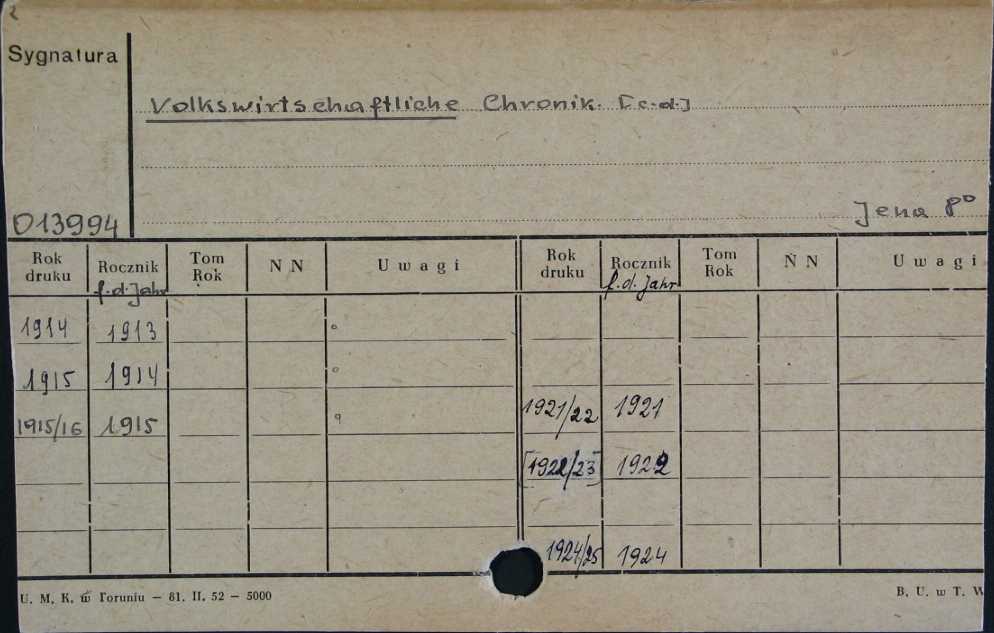 Sygnatura
Volkswirtschaftliche Chronik. [c.d.]
Jena 8º
013994
Rok druku Rocznik Tom Rok N N Uwagi Rok druku Rocznik Tom Rok N N Uwagi
f.d. Jahr f.d. Jahr
1914 1913
1915 1914
1921/22 1921
1915/16 1915
[1922/23] 1922
1924/25 1924
U. M. K. w Toruniu — 81. II. 52 — 5000
B. U. w T. W